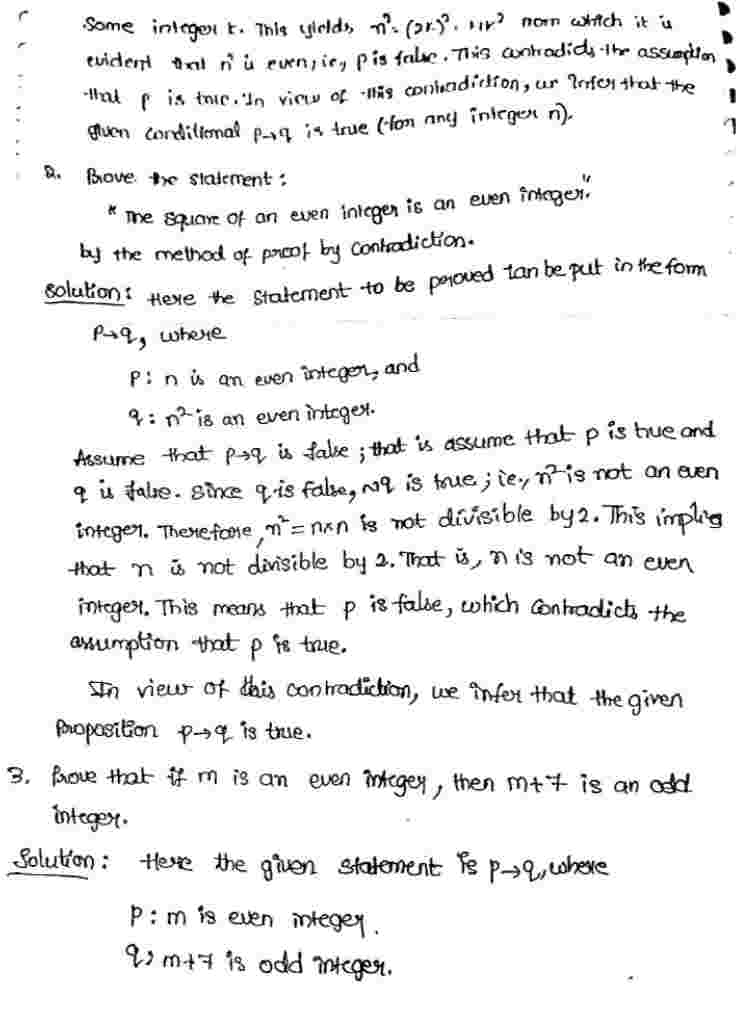 some integer k. This yields, n² = (2k)² = 4k² from which it is
evident that n² is even; ie, p is false. This contradicts the assumption
that p is true. In view of this contradiction, we infer that the
given conditional p→q is true (for any integer n).
2. Prove the statement:
"The square of an even integer is an even integer."
by the method of proof by contradiction.
Solution: Here the statement to be peroved can be put in the form
p→q, where
p: n is an even integer, and
q: n² is an even integer.
Assume that p→q is false; that is assume that p is true and
q is false. Since q is false, ~q is true; ie., n² is not an even
integer. Therefore, n² = n×n is not divisible by 2. This implies
that n is not divisible by 2. That is, n is not an even
integer. This means that p is false, which contradicts the
assumption that p is true.
In view of this contradiction, we infer that the given
proposition p→q is true.
3. Prove that if m is an even integer, then m+7 is an odd
integer.
Solution: Here the given statement is p→q, where
p: m is even integer.
q: m+7 is odd integer.